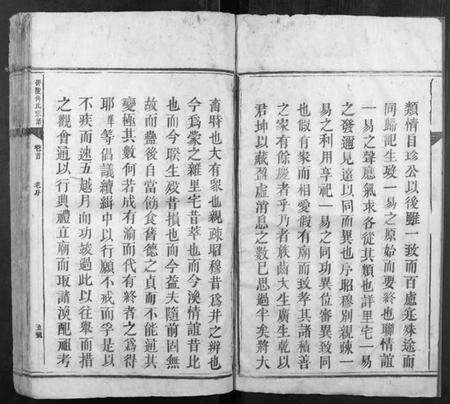 類情自珍公以後雖一致而百慮延殊途而
同歸記生歿一易之原始而要終也聯情誼
一易之聲應氣求各從其類也詳里宅一易
之發邇見遠以同而異也序昭穆別親疎一
易之利用享祀一易之同功異位審異致同
也假有家而相愛假有廟而致孝其諸積善
之家有餘慶者乎乃者族齒大生廣生乾以
君坤以藏盈虛消息之數已思過半矣將大
畜時也大有衆也親疎昭穆昔為井之辨也
今為蒙之雜里宅昔萃也而今渙情誼昔比
也而今睽生歿昔損也而今益夫隨前因無
故而蠱後自當飭食舊德之貞而不能過其
變極其數何若成有渝而代有終者之為得
耶 等倡議續緝中以行願不戒而孚是以
不疾而速五越月而功竣過此以往舉而措
之觀會通以行典禮立廟而取諸渙配祖考
氏宗譜
卷首
老序